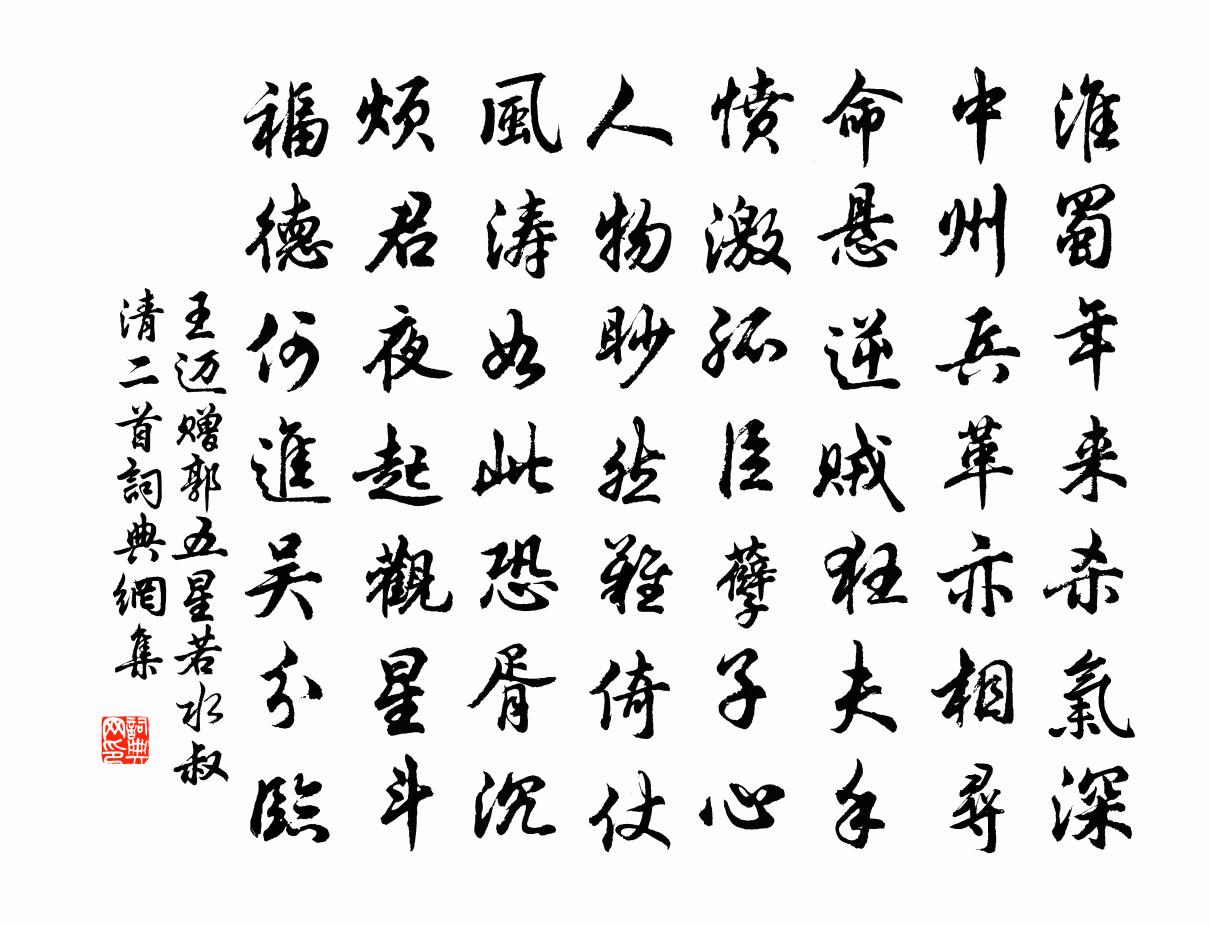 淮蜀年来杀氣深
中州兵革亦相尋
命悬逆賊狂夫手
憤激孤臣孽子心
人物眇然難倚仗
風涛如此恐胥沉
煩君夜起觀星斗
福德何進吴分臨
王迈赠郭五星若水叔
清二首詞典網集
詞典
网印